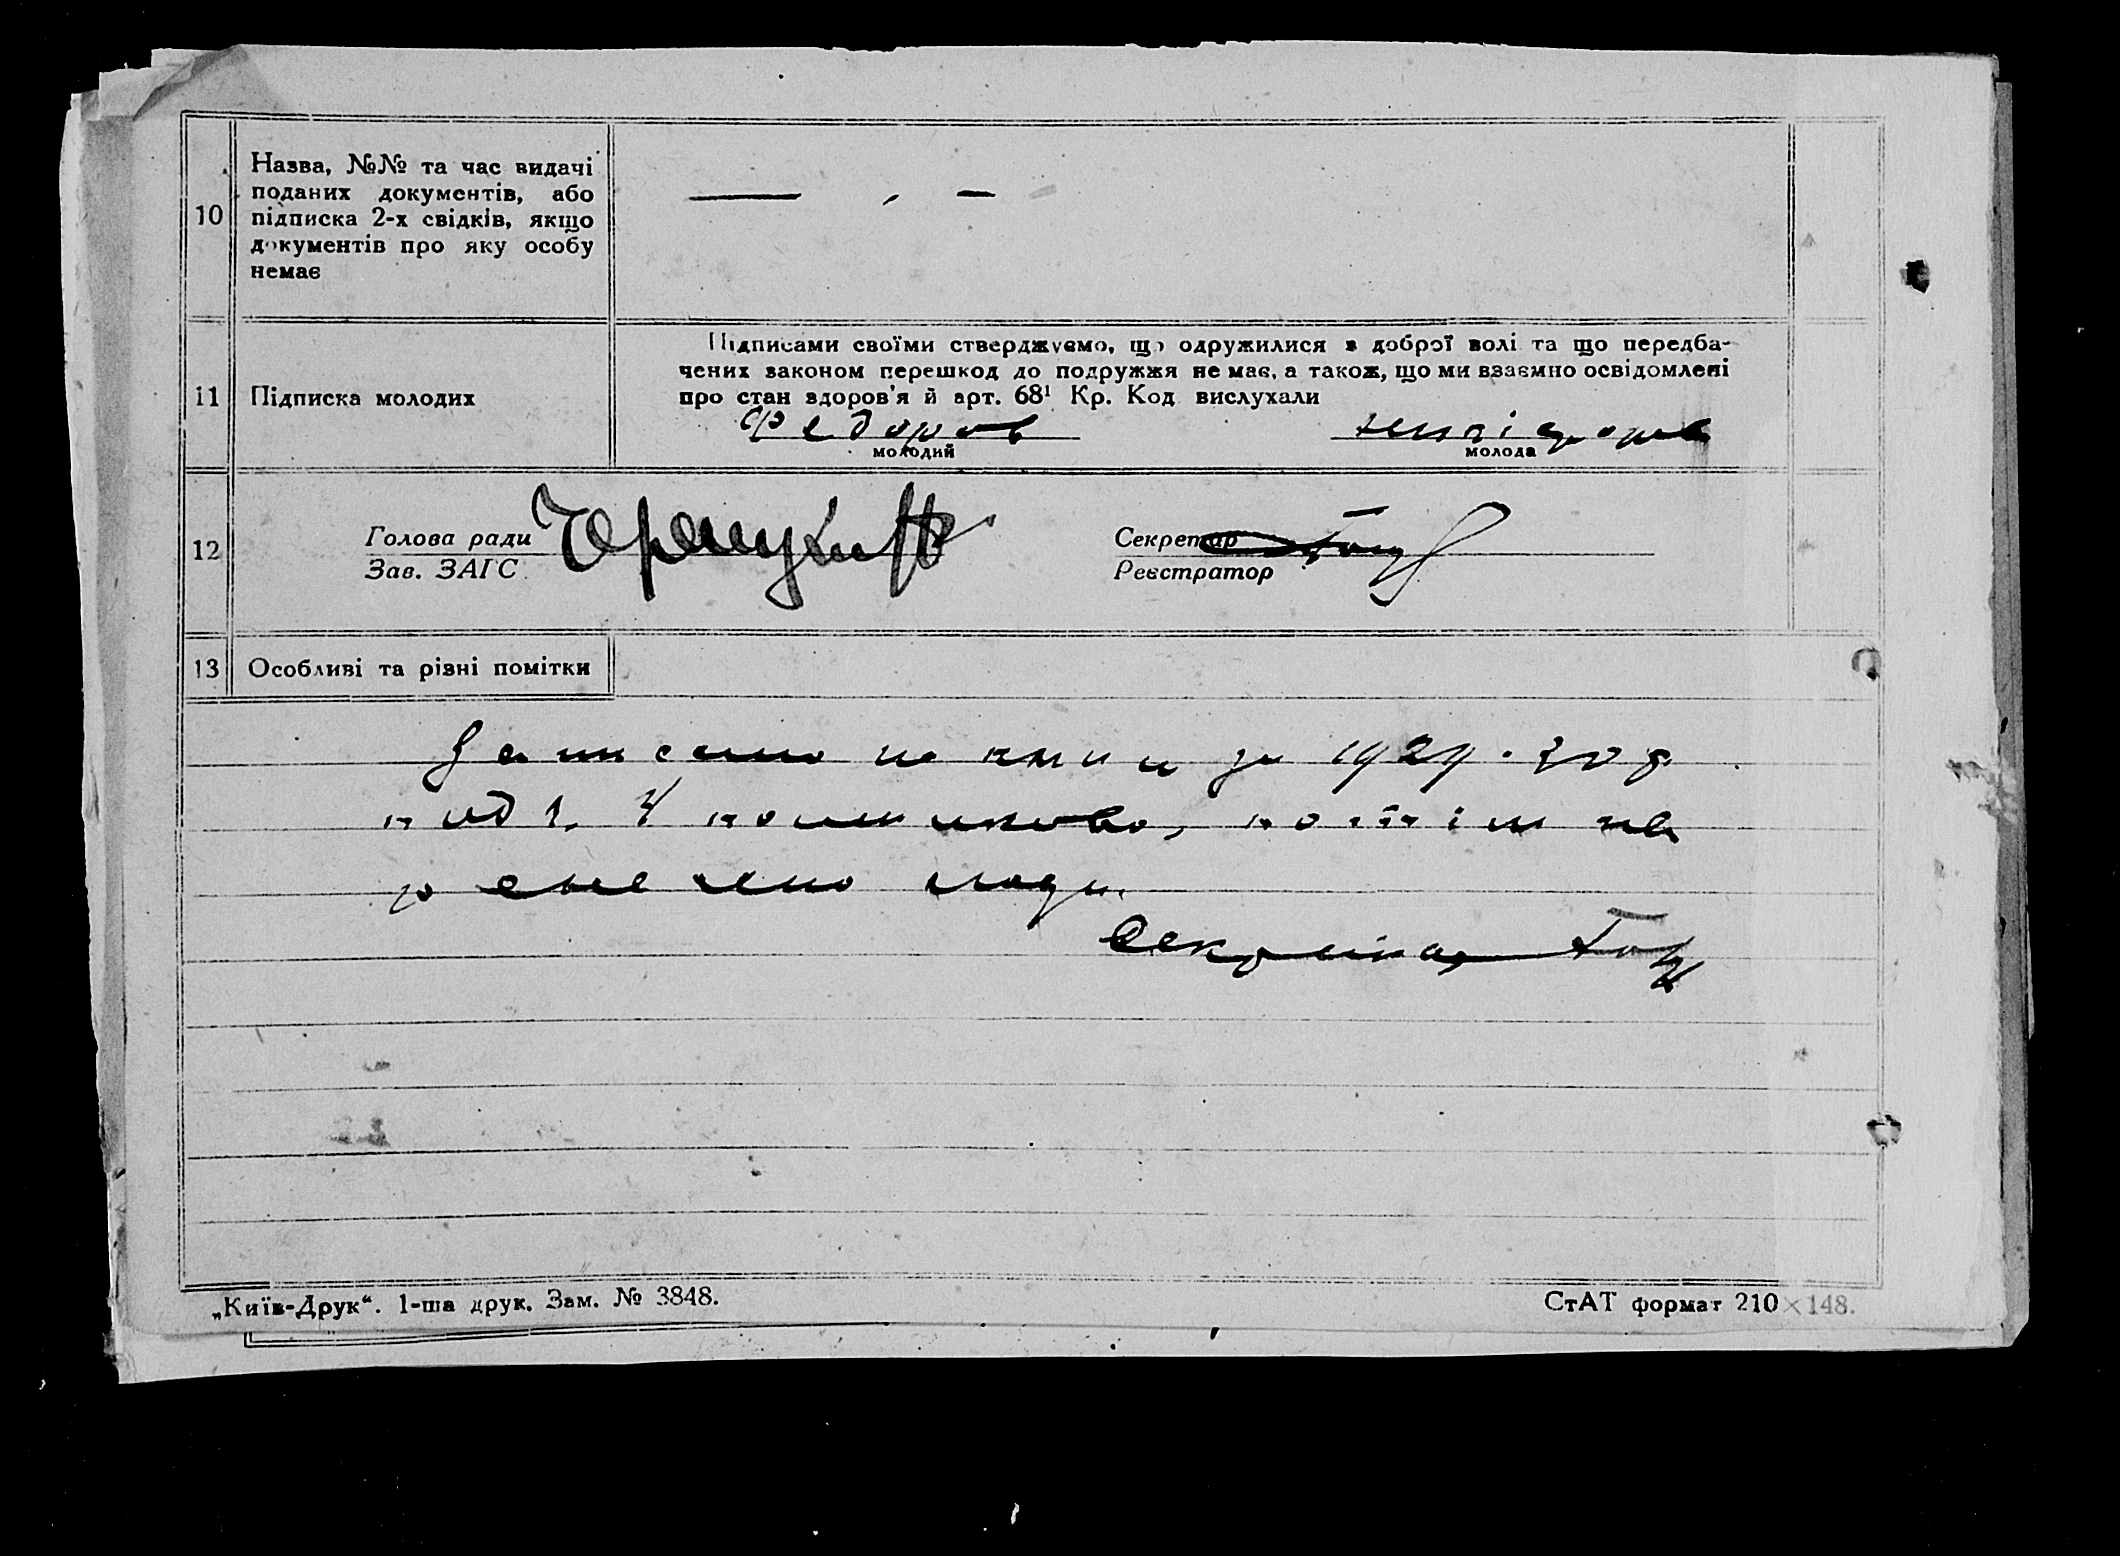 10
Назва, №№ та час видачі
поданих документів, або
підписка 2-х свідків, якщо
документів про яку особу
немає
11
Підписка молодих
Підписами своїми стверджуємо, що одружилися з доброї волі та що передба-
чених законом перешкод до подружжя не має, а також, що ми взаємно освідомлені
про стан здоров'я й арт. 68¹ Кр. Код вислухали
Федоров
молодий
молода
12
Голова ради
Зав. ЗАГС
Секретар
Реєстратор
13
Особливі та різні помітки
Записано по книзі за 1929. год
под № 4 помилково, потім на
Секретар
„Київ-Друк“. 1-ша друк. Зам. № 3848.
СтАТ формат 210×148.